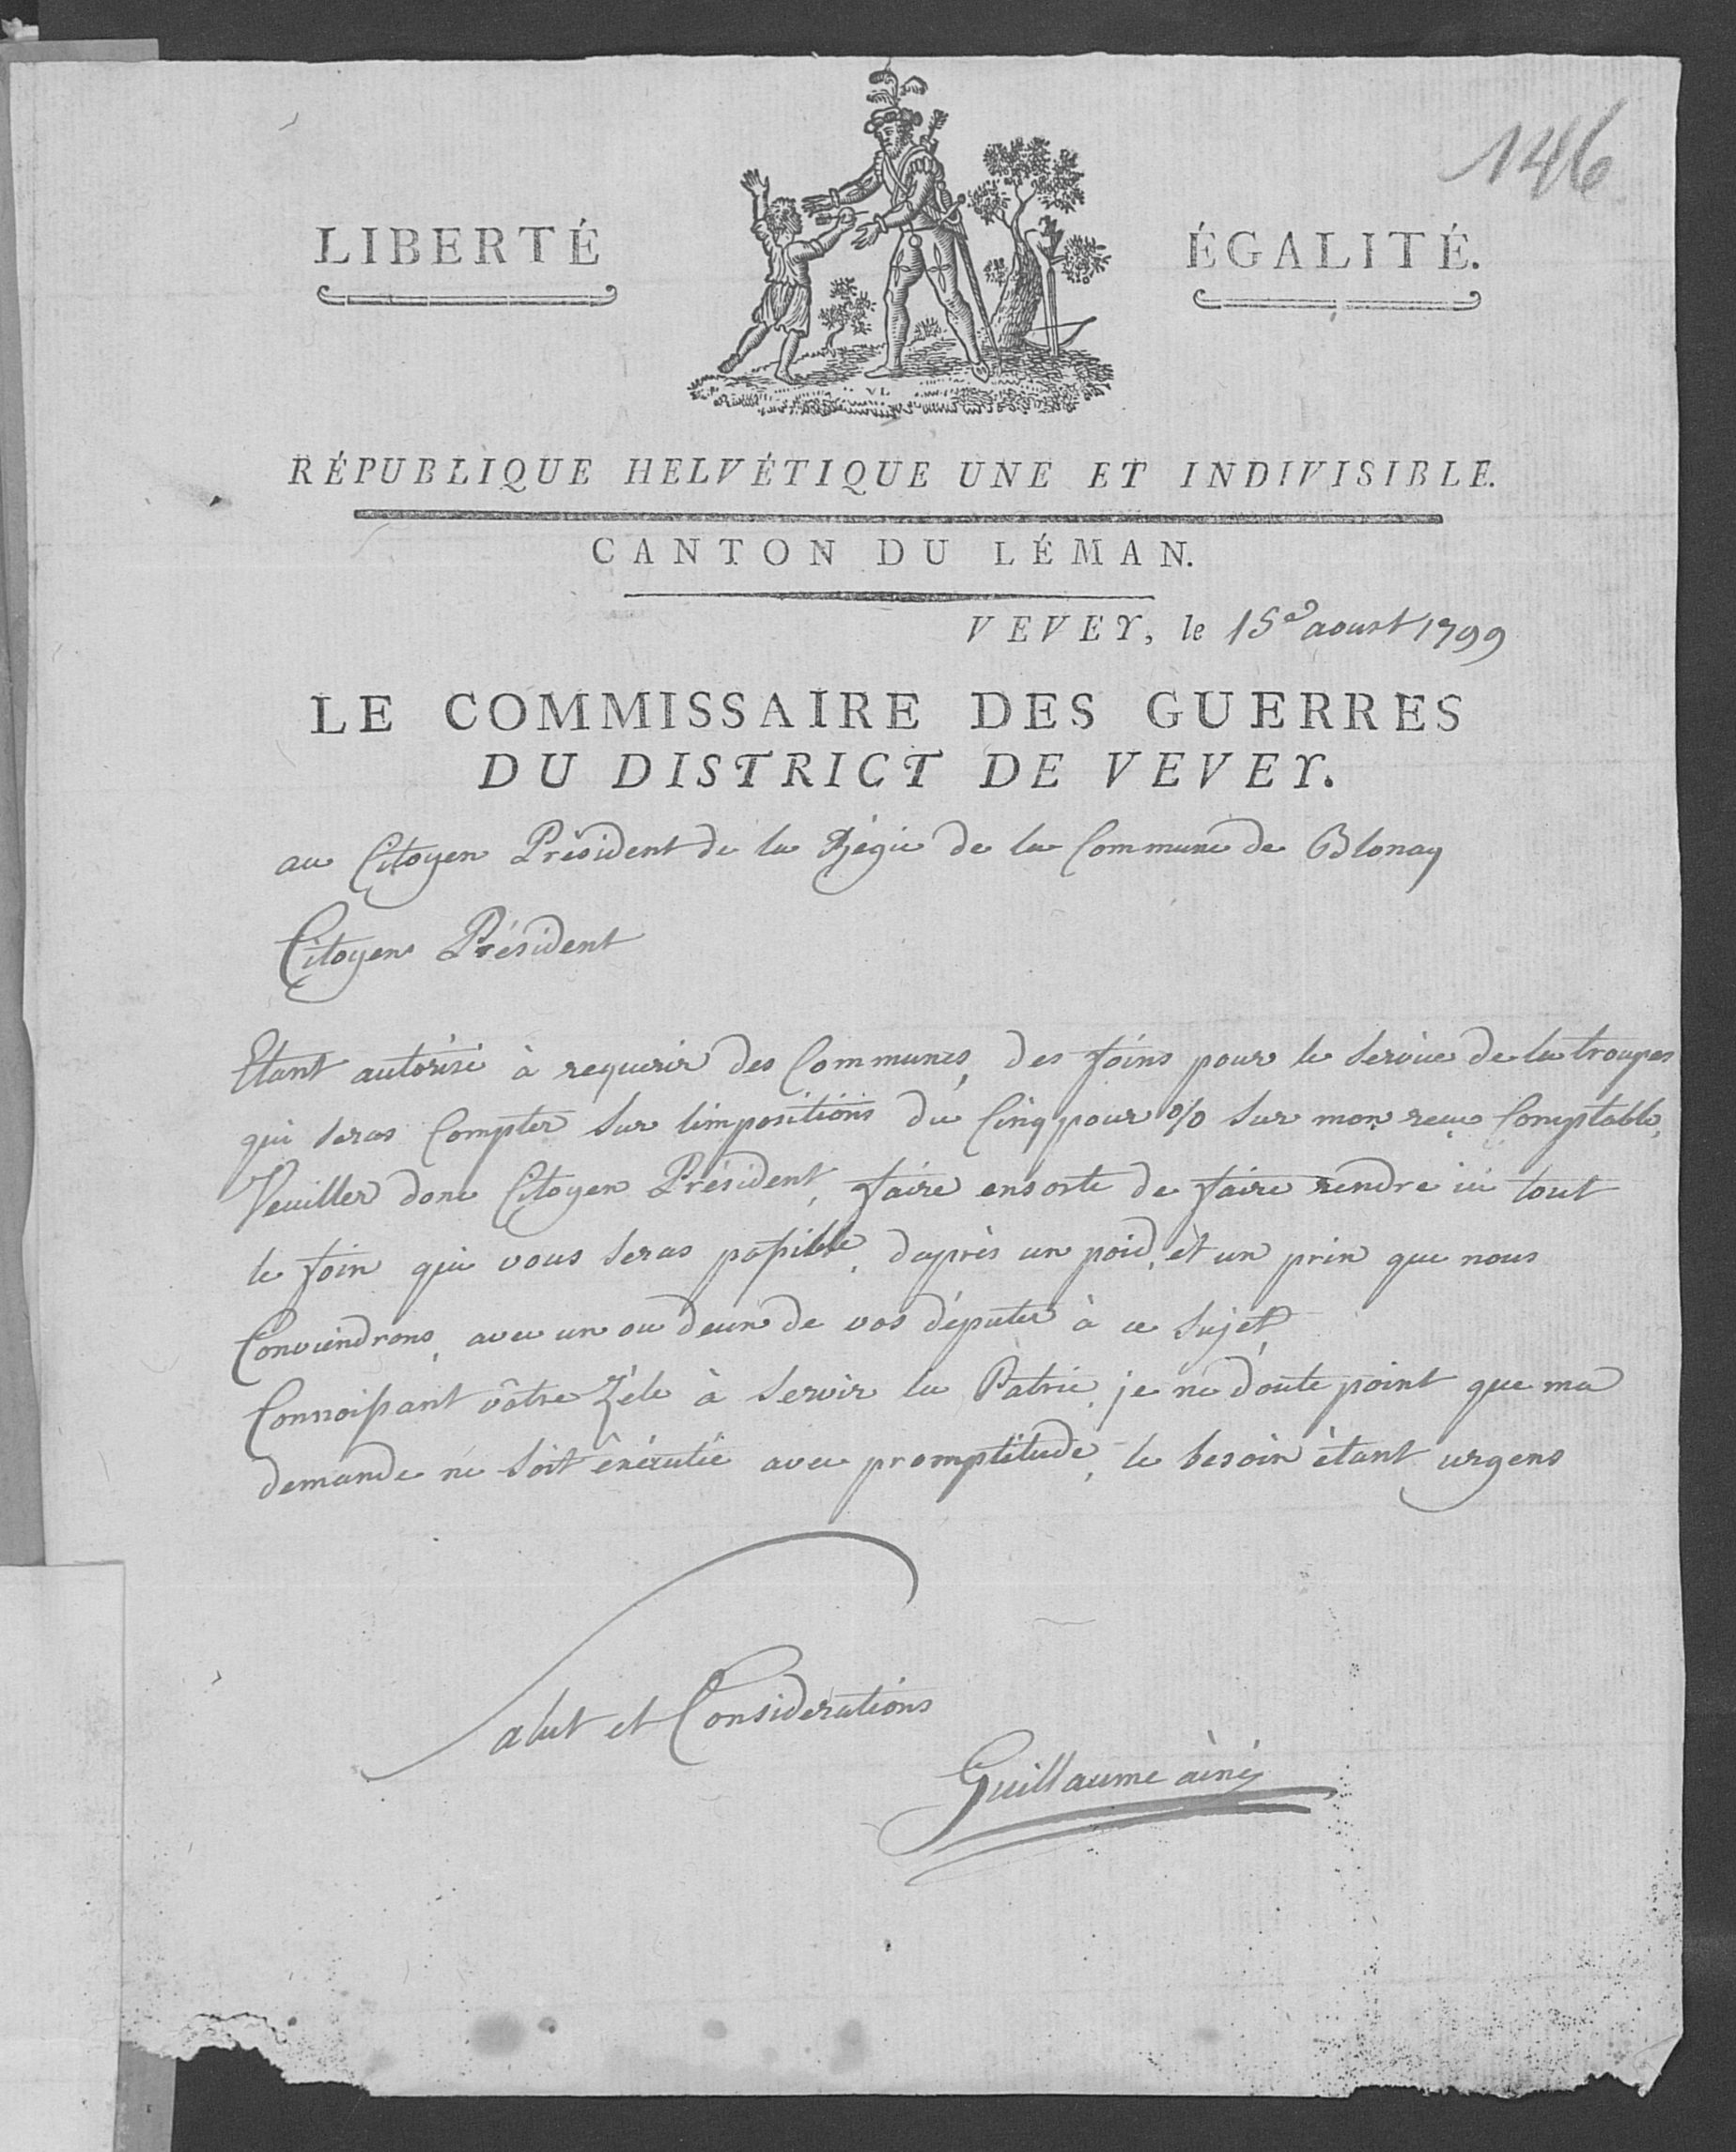 146
LIBERTÉ ÉGALITÉ.
VL
RÉPUBLIQUE HELVÉTIQUE UNE ET INDIVISIBLE.
CANTON DU LÉMAN.
VEVEY, le 15e aoust 1799
LE COMMISSAIRE DES GUERRES
DU DISTRICT DE VEVEY.
au Citoyen Président de la Régie de la Commune de Blonay
Citoyen Président
Etant autorisé à requerir des Communes, des foins pour le service de la troupes
qui seras Compter sur limpositions du Cinq pour % sur mon recu Comptable,
Veuiller donc Citoyen Président, faire ensorte de faire rendre ici tout
le foin qui vous seras possible, daprès un poid, et un prix que nous
Conviendrons, avec un ou deux de vos députer à ce sujet,
Connoissant vôtre Zéle à servir la Patrie, je ne doute point que ma
demande ne soit éxécutée avec promptitude, le besoin étant urgens
Salut et Considerations
Guillaume ainé